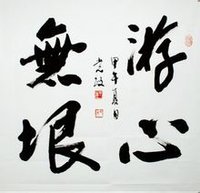 游心
無垠
甲午夏月